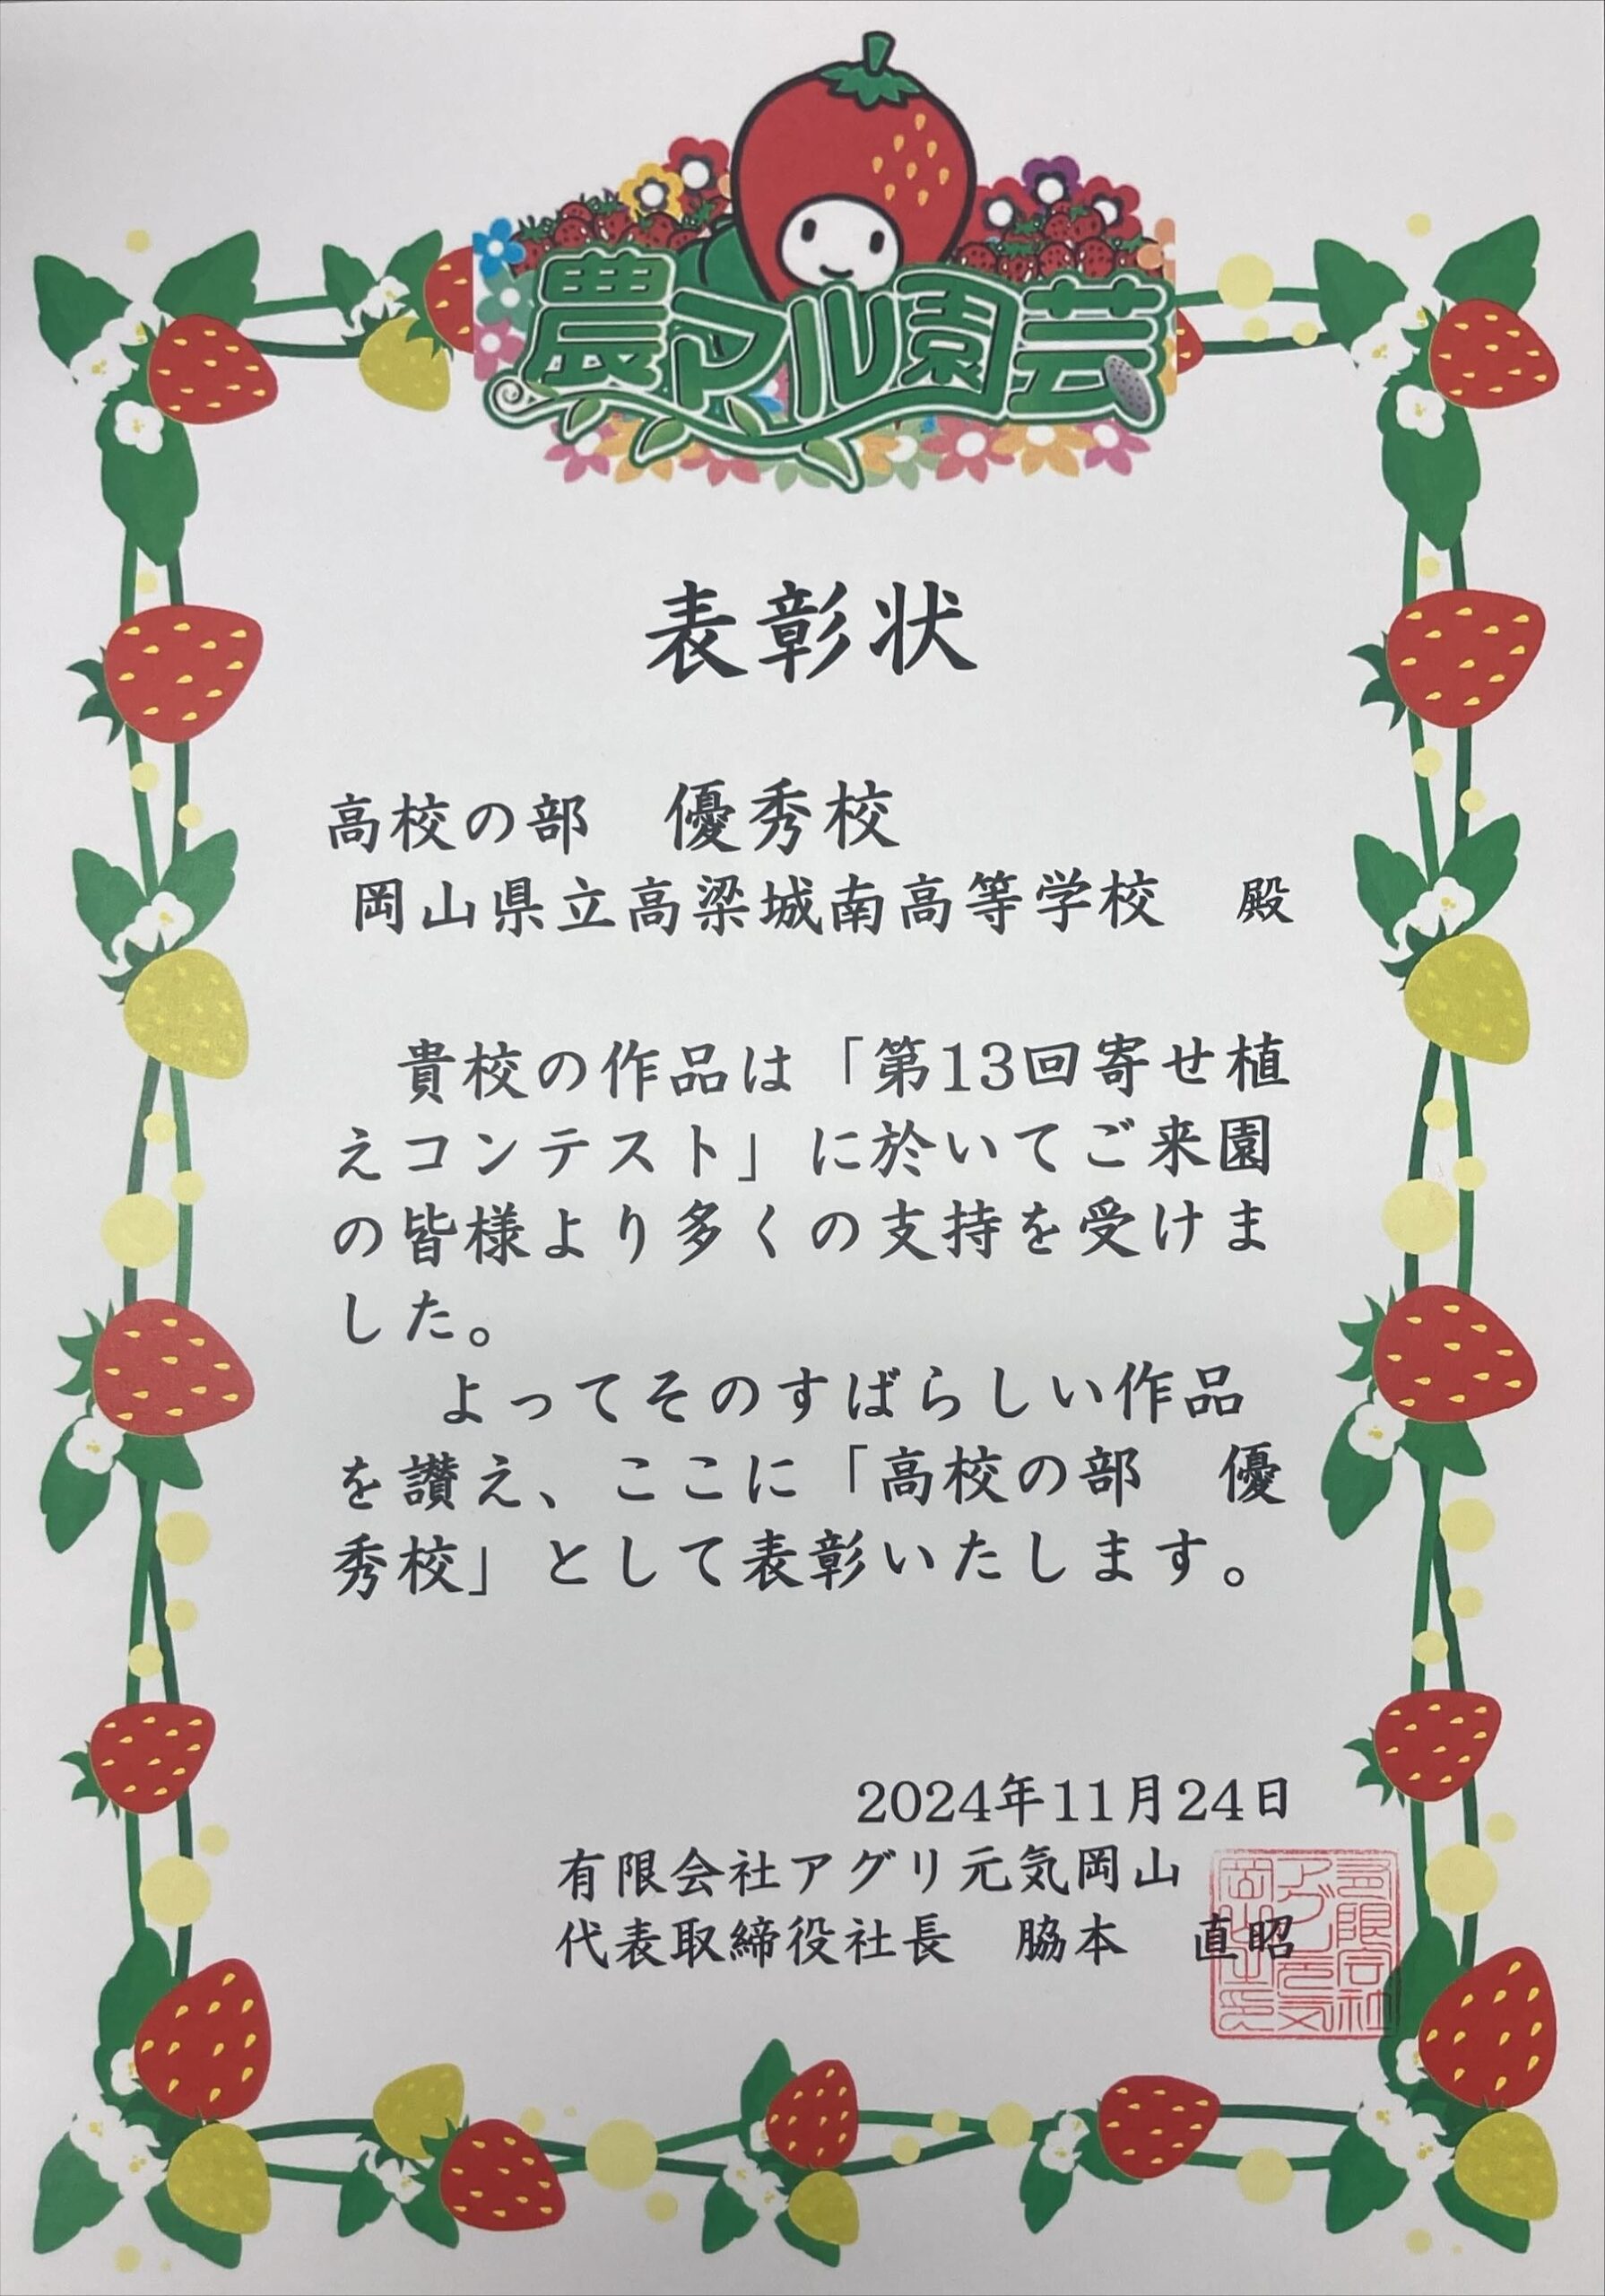 農マル園芸
表彰状
高校の部　優秀校
岡山県立高梁城南高等学校　殿
貴校の作品は「第13回寄せ植
えコンテスト」に於いてご来園
の皆様より多くの支持を受けま
した。
よってそのすばらしい作品
を讃え、ここに「高校の部　優
秀校」として表彰いたします。
2024年11月24日
有限会社アグリ元気岡山
代表取締役社長　脇本　直昭
有限会社
アグリ元気
岡山之印